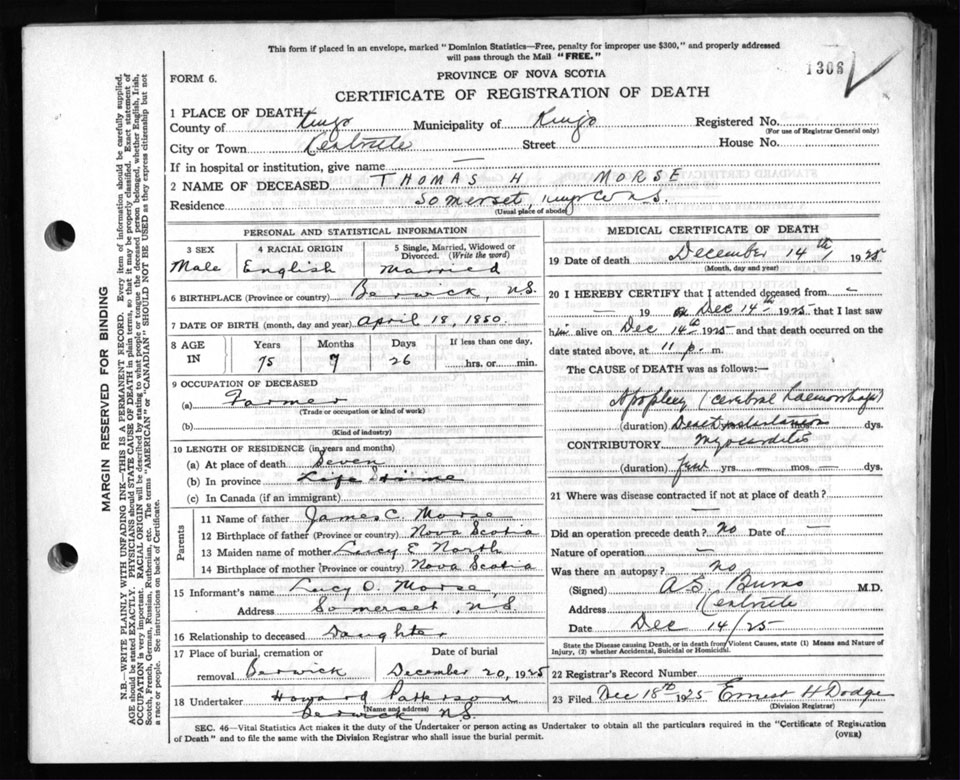 This form if placed in an envelope, marked "Dominion Statistics—Free, penalty for improper use $300," and properly addressed
will pass through the Mail "FREE."
1308
FORM 6.
PROVINCE OF NOVA SCOTIA
CERTIFICATE OF REGISTRATION OF DEATH
1 PLACE OF DEATH
County of Kings Municipality of Kings Registered No.
(For use of Registrar General only)
City or Town Street House No.
If in hospital or institution, give name —
2 NAME OF DECEASED THOMAS H MORSE
Residence Somerset, Kings Co N.S.
(Usual place of abode)
PERSONAL AND STATISTICAL INFORMATION
3 SEX 4 RACIAL ORIGIN 5 Single, Married, Widowed or Divorced. (Write the word)
Male English Married
6 BIRTHPLACE (Province or country) Berwick, N.S.
7 DATE OF BIRTH (month, day and year) April 18, 1850.
8 AGE IN Years Months Days If less than one day,
75 7 26 hrs. or min.
9 OCCUPATION OF DECEASED
(a) Farmer
(Trade or occupation or kind of work)
(b)
(Kind of industry)
10 LENGTH OF RESIDENCE (in years and months)
(a) At place of death Seven
(b) In province Life time
(c) In Canada (if an immigrant)
Parents
11 Name of father James C. Morse
12 Birthplace of father (Province or country) Nova Scotia
13 Maiden name of mother Lucy E North
14 Birthplace of mother (Province or country) Nova Scotia
15 Informant's name Lucy O. Morse,
Address Somerset, N.S.
16 Relationship to deceased Daughter
17 Place of burial, cremation or removal Berwick
Date of burial
December 20, 1925
18 Undertaker Howard Patterson
(Name and address)
Berwick N.S.
MEDICAL CERTIFICATE OF DEATH
19 Date of death December 14th, 1925
(Month, day and year)
20 I HEREBY CERTIFY that I attended deceased from —
— 19 Dec 14th 1925 that I last saw
him alive on Dec 14th 1925 and that death occurred on the
date stated above, at 11 p. m.
The CAUSE of DEATH was as follows:—
Apoplexy (cerebral haemorrhage)
(duration) Death instantaneous dys.
CONTRIBUTORY Myocarditis
(duration) few yrs. — mos. — dys.
21 Where was disease contracted if not at place of death?
—
Did an operation precede death? No Date of —
Nature of operation —
Was there an autopsy? No
(Signed) A.S. Burns M.D.
Address
Date Dec 14/25
State the Disease causing Death, or in death from Violent Causes, state (1) Means and Nature of
Injury, (2) whether Accidental, Suicidal or Homicidal.
22 Registrar's Record Number
23 Filed Dec 18th 1925 Ernest H Dodge
(Division Registrar)
SEC. 46—Vital Statistics Act makes it the duty of the Undertaker or person acting as Undertaker to obtain all the particulars required in the "Certificate of Registration
of Death" and to file the same with the Division Registrar who shall issue the burial permit.
(OVER)
MARGIN RESERVED FOR BINDING
N.B.—WRITE PLAINLY WITH UNFADING INK—THIS IS A PERMANENT RECORD. Every item of information should be carefully supplied.
AGE should be stated EXACTLY. PHYSICIANS should STATE CAUSE OF DEATH in plain terms, so that it may be properly classified. Exact statement of
OCCUPATION is very important. RACIAL ORIGIN will be described by stating to what people or tongue the deceased person belonged, whether English, Irish,
Scotch, French, German, Russian, Ruthenian, etc. The terms "AMERICAN" or "CANADIAN" SHOULD NOT BE USED as they express citizenship but not
a race or people. See instructions on back of Certificate.